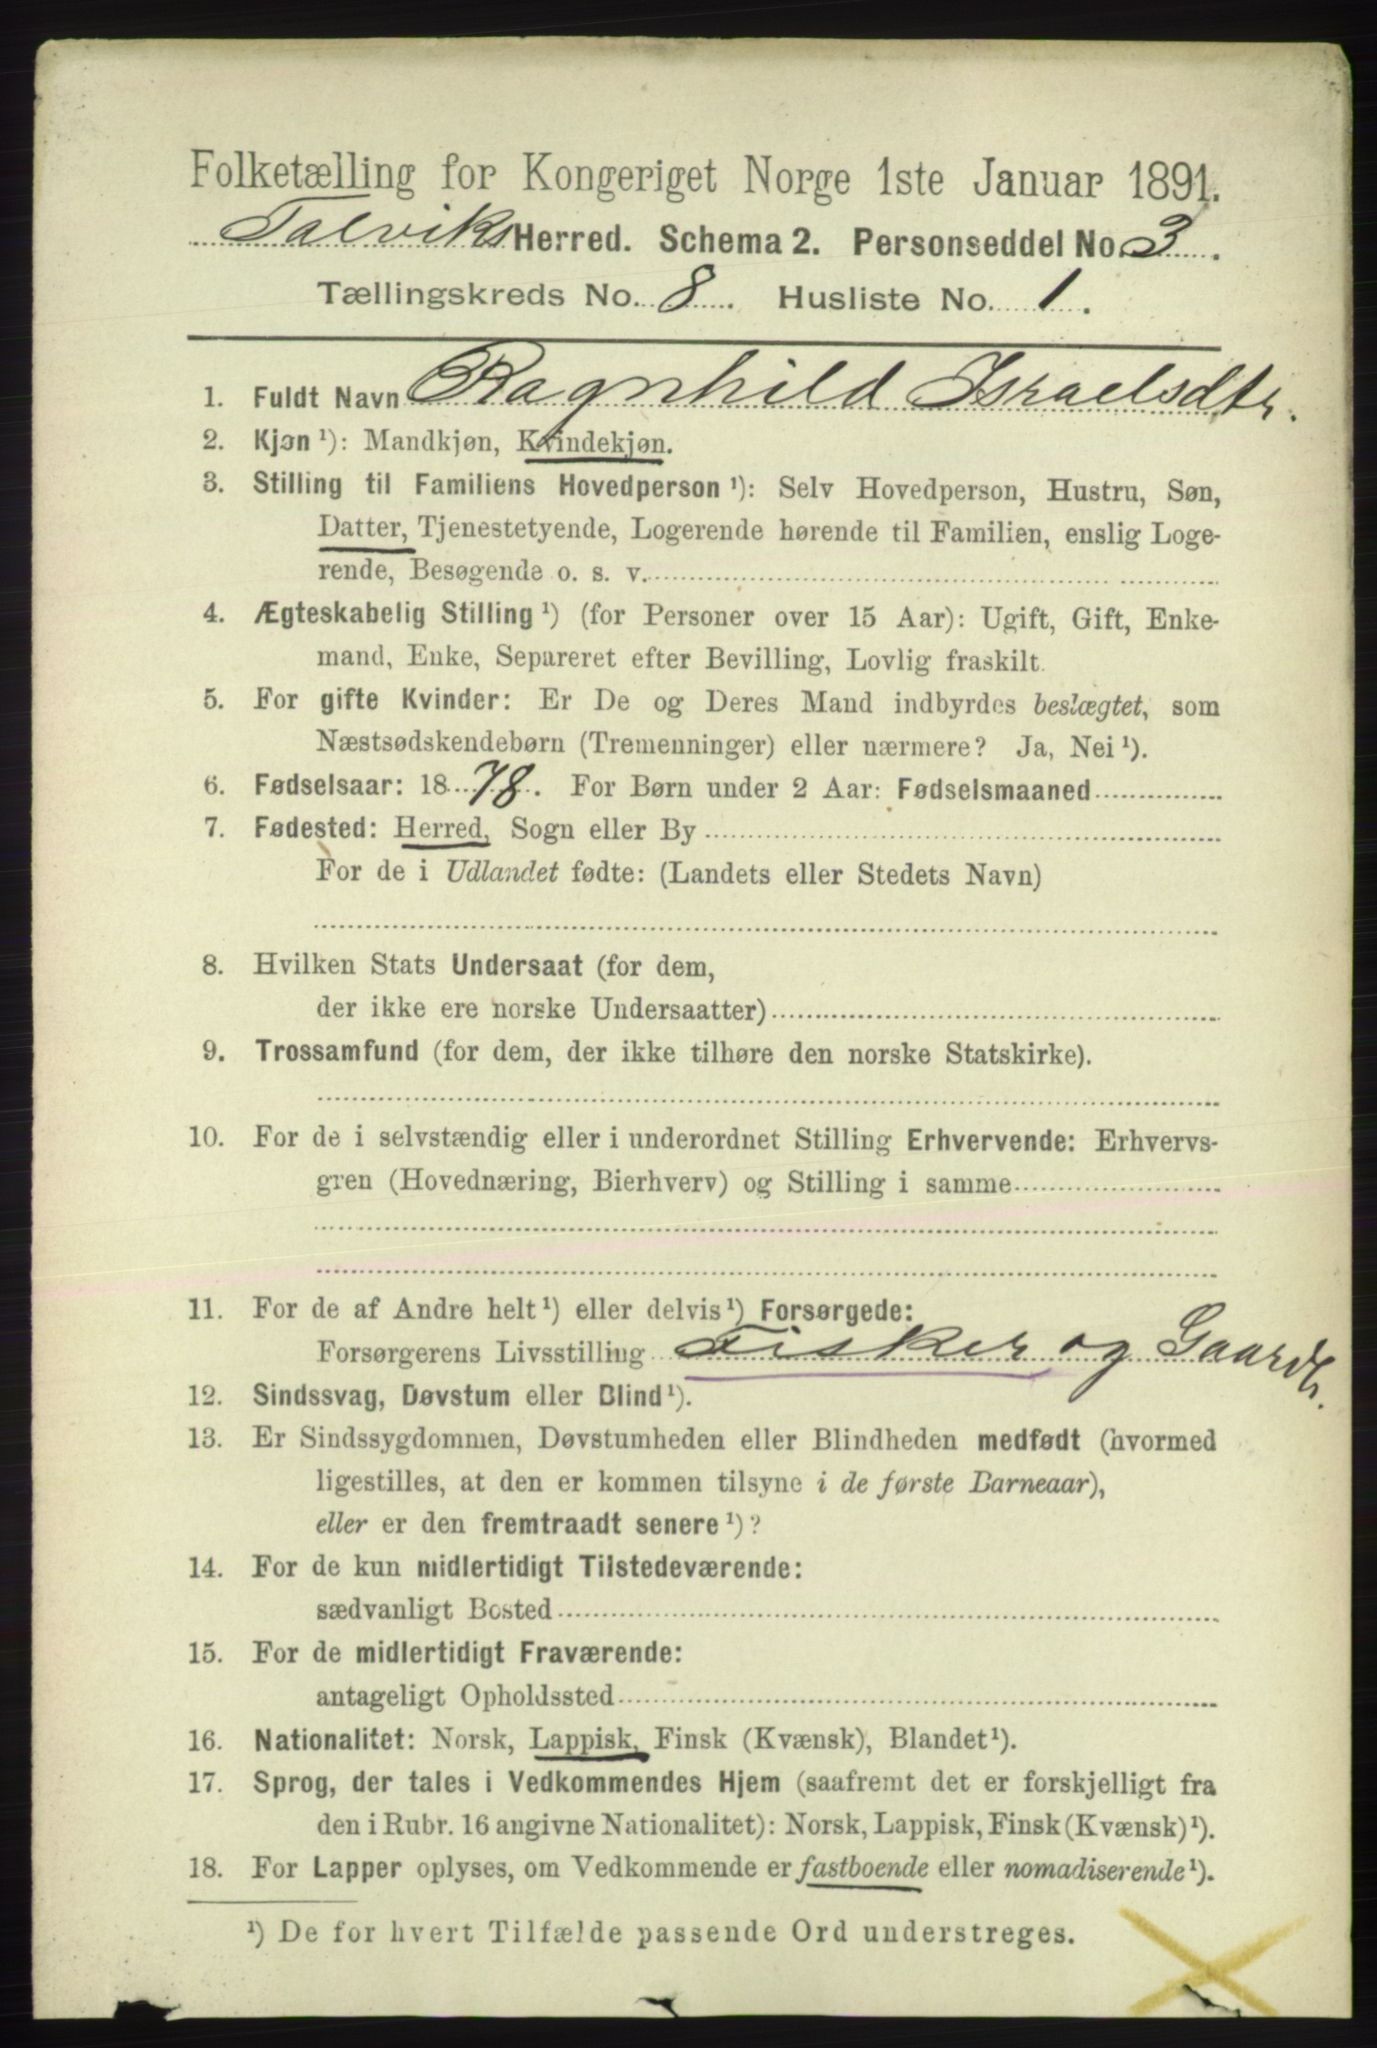 Folketælling for Kongeriget Norge 1ste Januar 1891.
Talviks Herred. Schema 2. Personseddel No. 3.
Tællingskreds No. 8. Husliste No. 1.
1. Fuldt Navn Ragnhild Israelsdtr.
2. Kjøn ¹): Mandkjøn, Kvindekjøn.
3. Stilling til Familiens Hovedperson ¹): Selv Hovedperson, Hustru, Søn,
Datter, Tjenestetyende, Logerende hørende til Familien, enslig Loge-
rende, Besøgende o. s. v.
4. Ægteskabelig Stilling ¹) (for Personer over 15 Aar): Ugift, Gift, Enke-
mand, Enke, Separeret efter Bevilling, Lovlig fraskilt.
5. For gifte Kvinder: Er De og Deres Mand indbyrdes beslægtet, som
Næstsødskendebørn (Tremenninger) eller nærmere? Ja, Nei ¹).
6. Fødselsaar: 1878. For Børn under 2 Aar: Fødselsmaaned
7. Fødested: Herred, Sogn eller By
For de i Udlandet fødte: (Landets eller Stedets Navn)
8. Hvilken Stats Undersaat (for dem,
der ikke ere norske Undersaatter)
9. Trossamfund (for dem, der ikke tilhøre den norske Statskirke).
10. For de i selvstændig eller i underordnet Stilling Erhvervende: Erhvervs-
gren (Hovednæring, Bierhverv) og Stilling i samme
11. For de af Andre helt ¹) eller delvis ¹) Forsørgede:
Forsørgerens Livsstilling Fisker og Gaardbr.
12. Sindssvag, Døvstum eller Blind ¹).
13. Er Sindssygdommen, Døvstumheden eller Blindheden medfødt (hvormed
ligestilles, at den er kommen tilsyne i de første Barneaar),
eller er den fremtraadt senere ¹)?
14. For de kun midlertidigt Tilstedeværende:
sædvanligt Bosted
15. For de midlertidigt Fraværende:
antageligt Opholdssted
16. Nationalitet: Norsk, Lappisk, Finsk (Kvænsk), Blandet ¹).
17. Sprog, der tales i Vedkommendes Hjem (saafremt det er forskjelligt fra
den i Rubr. 16 angivne Nationalitet): Norsk, Lappisk, Finsk (Kvænsk) ¹).
18. For Lapper oplyses, om Vedkommende er fastboende eller nomadiserende ¹).
¹) De for hvert Tilfælde passende Ord understreges.